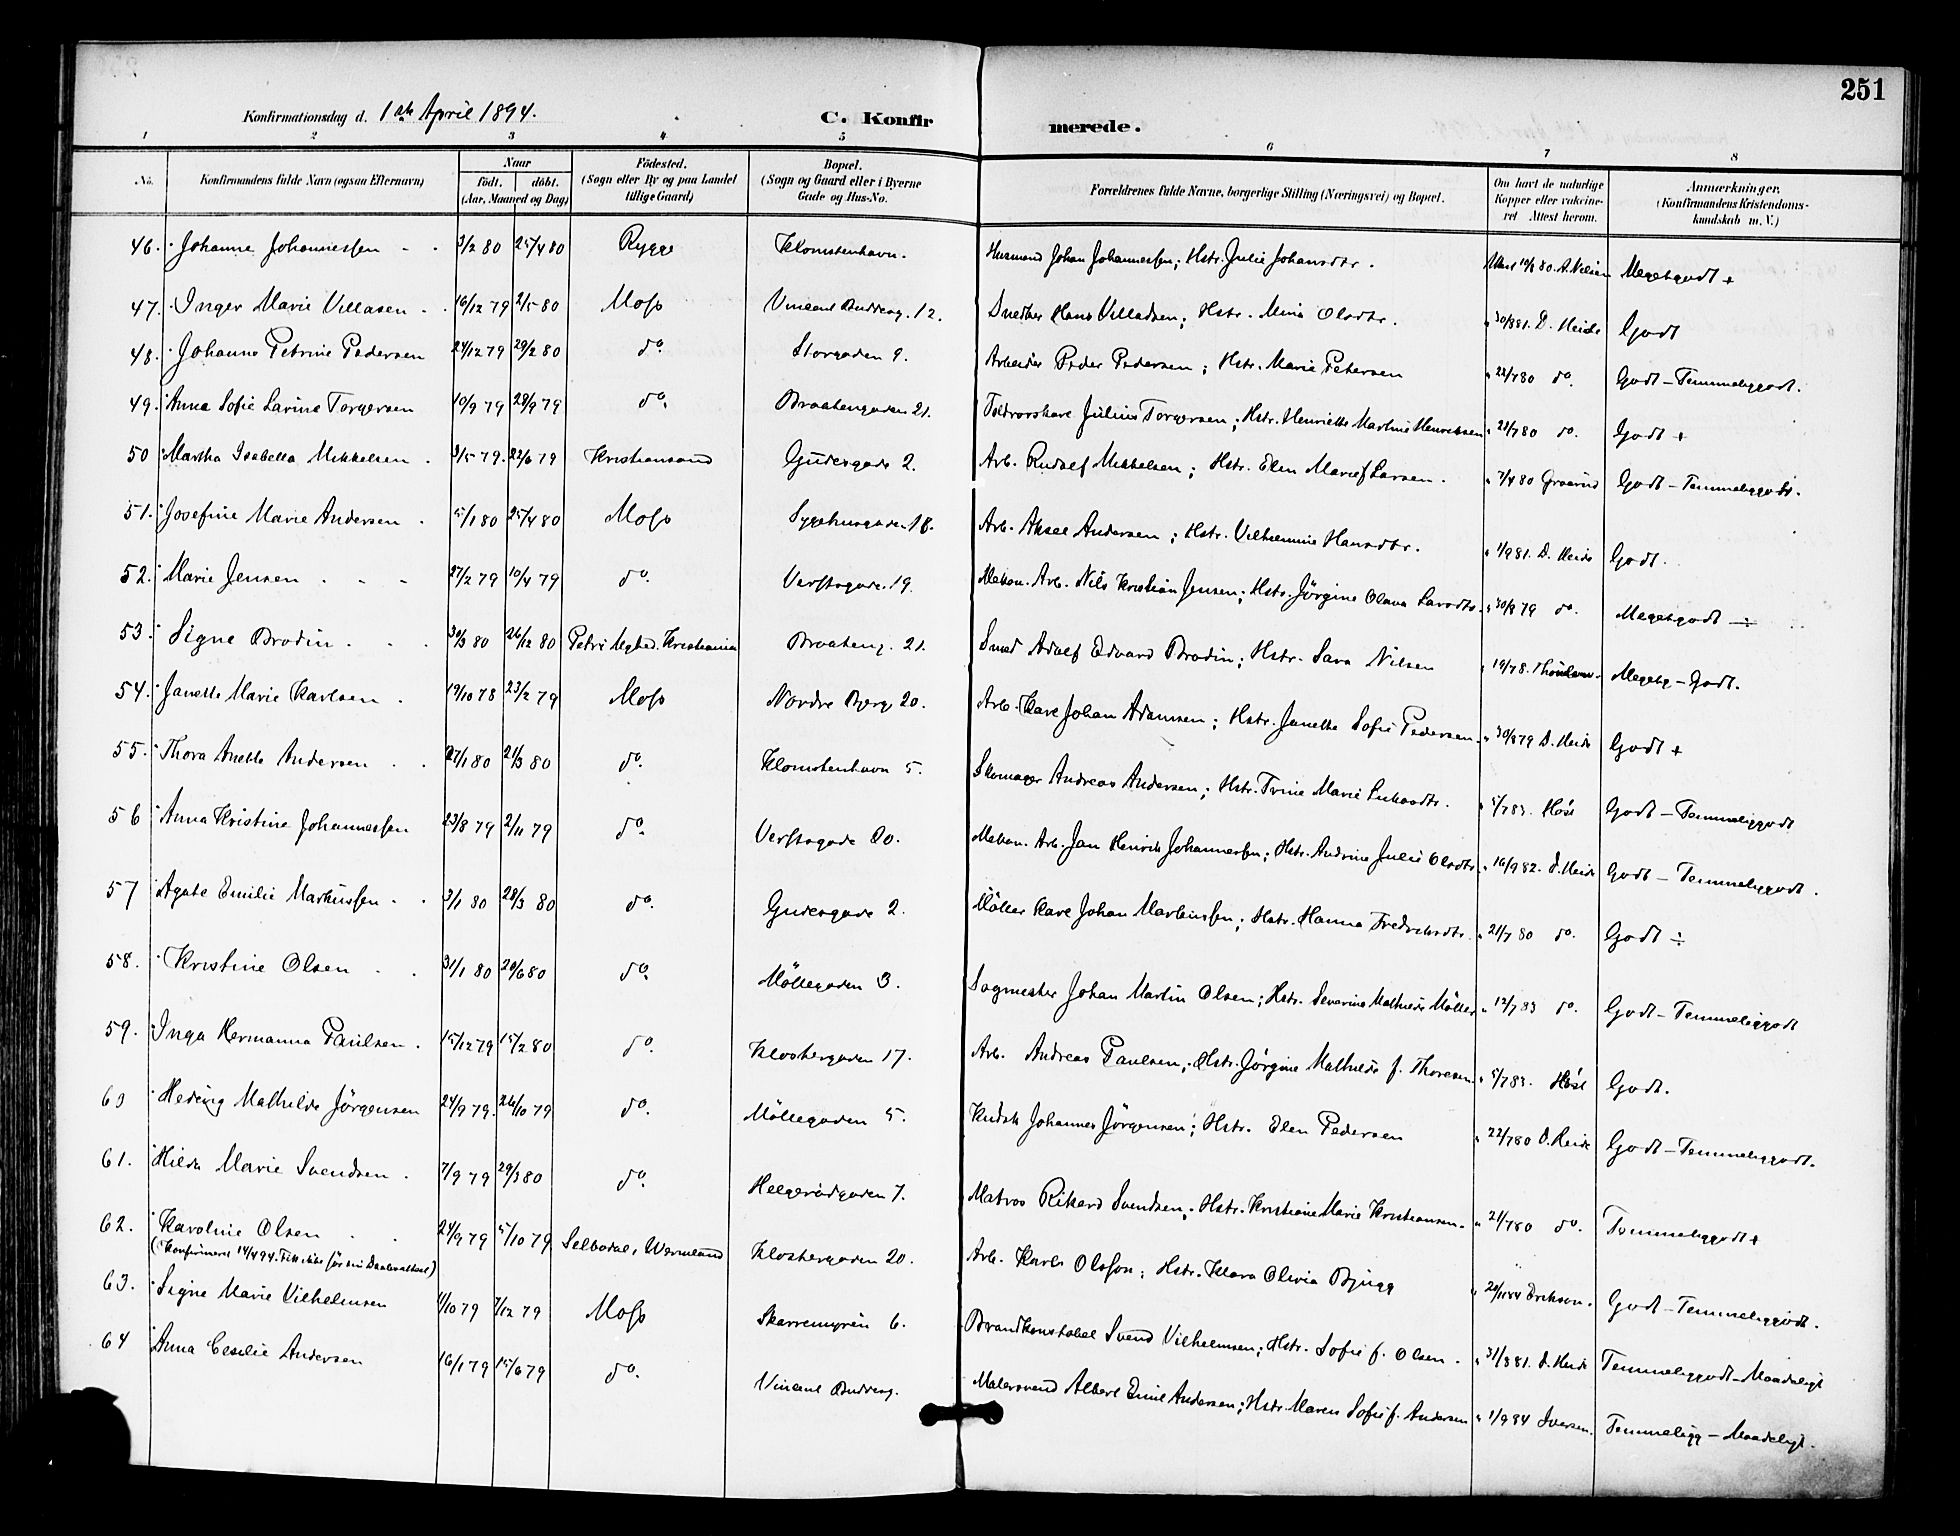 251
Konfirmationsdag d. 1ste April 1894.
C. Konfirmerede.
1 2 3 4 5 6 7 8
No. | Konfirmandens fulde Navn (ogsaa Efternavn) | Naar födt. | döbt. (Aar, Maaned og Dag) | Födested. (Sogn eller By og paa Landet tillige Gaard) | Bopæl. (Sogn og Gaard eller i Byerne Gade og Hus-No. | Forældrenes fulde Navne, borgerlige Stilling (Næringsvei) og Bopæl. | Om havt de naturlige Kopper eller vakcineret Attest herom. | Anmærkninger. (Konfirmandens Kristendomskundskab m. V.)
46. Johanne Johannessen 3/2 80 25/4 80 Rygge Klomstenhavn. Husmand Johan Johannessen; Hstr. Julie Johansdtr. Attest 19/8 80. A. Nilsen Megetgodt +
47. Inger Marie Villasen 16/12 79 2/5 80 Moss Vincent Buddesg. 12. Snedker Hans Villadsen; Hstr. Mina Olsdtr. " 30/8 81. D. Heide Godt
48. Johanne Petrine Pedersen 24/12 79 29/2 80 do. Storgaden 9. Arbeider Peder Pedersen; Hstr. Marie Petersen " 22/7 80 do. Godt - Temmeliggodt.
49. Anna Sofie Larine Torgersen 10/9 79 28/9 79 do. Braatengaden 21. Julius Torgersen; Hstr. Henriette Martine Henriksen " 22/7 80 do. Godt +
50 Martha Isabella Mikkelsen 3/5 79. 22/6 79 Kristiansand Gudesgade 2. Arb. Rudolf Mikkelsen; Hstr. Elen Marie f Larsen. " 7/4 80 Godt - Temmeliggodt.
51. Josefine Marie Andersen 5/1 80 25/4 80 Moss Sygehusgaden 18. Arb. Aksel Andersen; Hstr. Vilhelmine Hansdtr. " 1/9 81. D. Heide Godt.
52. Marie Jensen 27/2 79 10/4 79 do. Verftsgade. 19. Mekan. Arb. Nils Kristian Jensen; Hstr. Jörgine Olava Larsdtr. " 30/8 79 do. Megetgodt ÷
53. Signe Brodin 30/3 80 26/12 80 Petri Mghed. Kristiania Braateng. 21. Smed Adolf Edvard Brodin; Hstr. Sara Nilsen Megetg - Godt.
54. Janette Marie Karlsen 19/10 78 23/2 79 Moss Nordre Bjerg 20. Arb. Karl Johan Adamsen; Hstr. Janette Sofie Pedersen. " 30/8 79 D. Heide Godt +
55. Thora Anette Andersen 27/1 80 21/3 80 do. Klomstenhavn 5. Skomager Andreas Andersen; Hstr. Trine Marie " 5/7 83. Höst Godt - Temmeliggodt
56 Anna Kristine Johannessen 23/8 79 2/11 79 do. Verftsgade 20. Mekan. Arb. Jan Henrik Johannessen; Hstr. Andrine Julie Olsdtr. " 16/9 82. D. Heide Godt - Temmeliggodt.
57 Agate Emilie Markussen 3/1 80 28/3 80 do. Gudesgade 2. Möller Karl Johan Markussen; Hstr. Hanna Fredriksdtr. " 21/7 80 do. Godt ÷
58. Kristine Olsen 31/1 80 20/6 80 do. Möllegaden 3. Sagmester Johan Martin Olsen; Hstr. Severine Mathilde Möller " 12/7 83 do. Godt - Temmeliggodt
59. Inga Hermanna Paulsen 15/12 79 15/2 80 do. Klostergaden 17. Arb. Andreas Paulsen; Hstr. Jörgine Mathilde f. Thoresen. " 5/7 83. Höst Godt.
60 Hedvig Mathilde Jörgensen 24/9 79. 26/10 79 do. Möllegaden 5. Kudsk Johannes Jörgensen; Hstr. Elen Pedersen " 22/7 80 D. Heide Godt - Temmeliggodt.
61. Hilda Marie Svendsen 7/9 79 29/3 80 do. Helgerödgaden 7. Matros Rikard Svendsen; Hstr. Kristiane Marie Kristiansen. " 21/7 80 do. Temmeliggodt +
62. Karoline Olsen 24/9 79 5/10 79 Selbodal, Wermland Klostergaden 20. Arb. Karl Olsson; Hstr. Klara Olivia Bjugg " 20/11 84 Erikson. Godt - Temmeliggodt.
(Konfirmeret 14/4 94. Fik ikke för sin Daabsattest)
63. Signe Marie Vilhelmsen 1/10 79 7/12 79 Moss Skarremyren 6. Brandkonstabel Svend Vilhelmsen; Hstr. Sofie f. Olsen. " 31/8 81. D. Heide Temmeliggodt - Maadeligt
64 Anna Cecilie Andersen 16/1 79 15/6 79 do. Vincent Buddesg. Malersvend Albert Emil Andersen; Hstr. Maren Sofie f. Andersen " 1/9 84 Iversen. Temmeligg - Maadeligt.